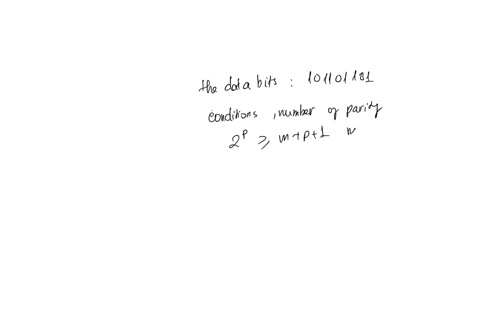 the data bits : 101101101
conditions, number of parity
2^p ≥ m+p+1